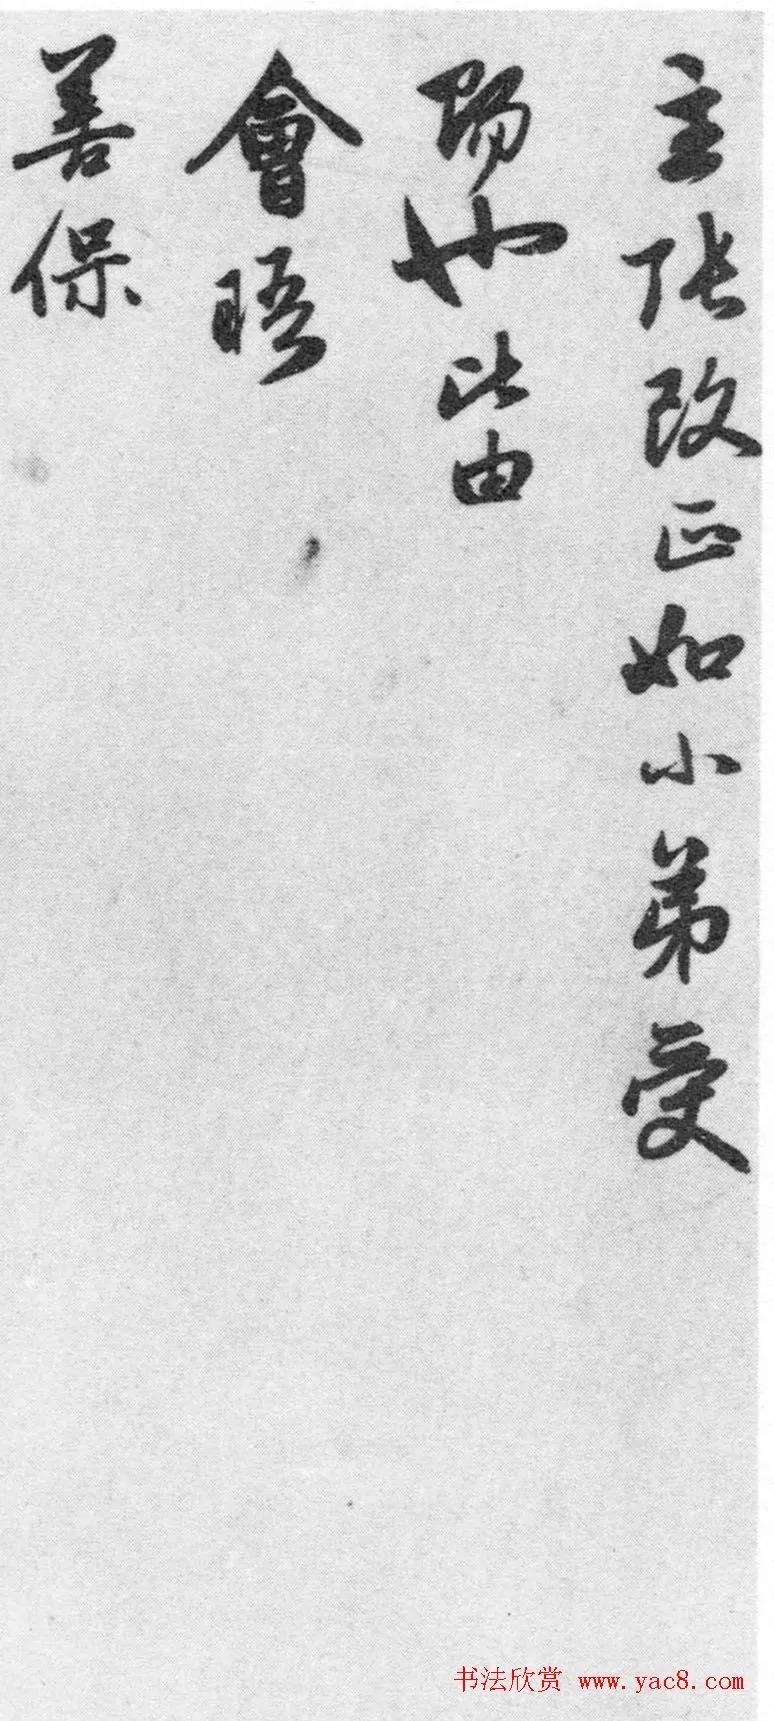 主張改正如小弟受
賜也此由
會晤
善保
书法欣赏 www.yac8.com